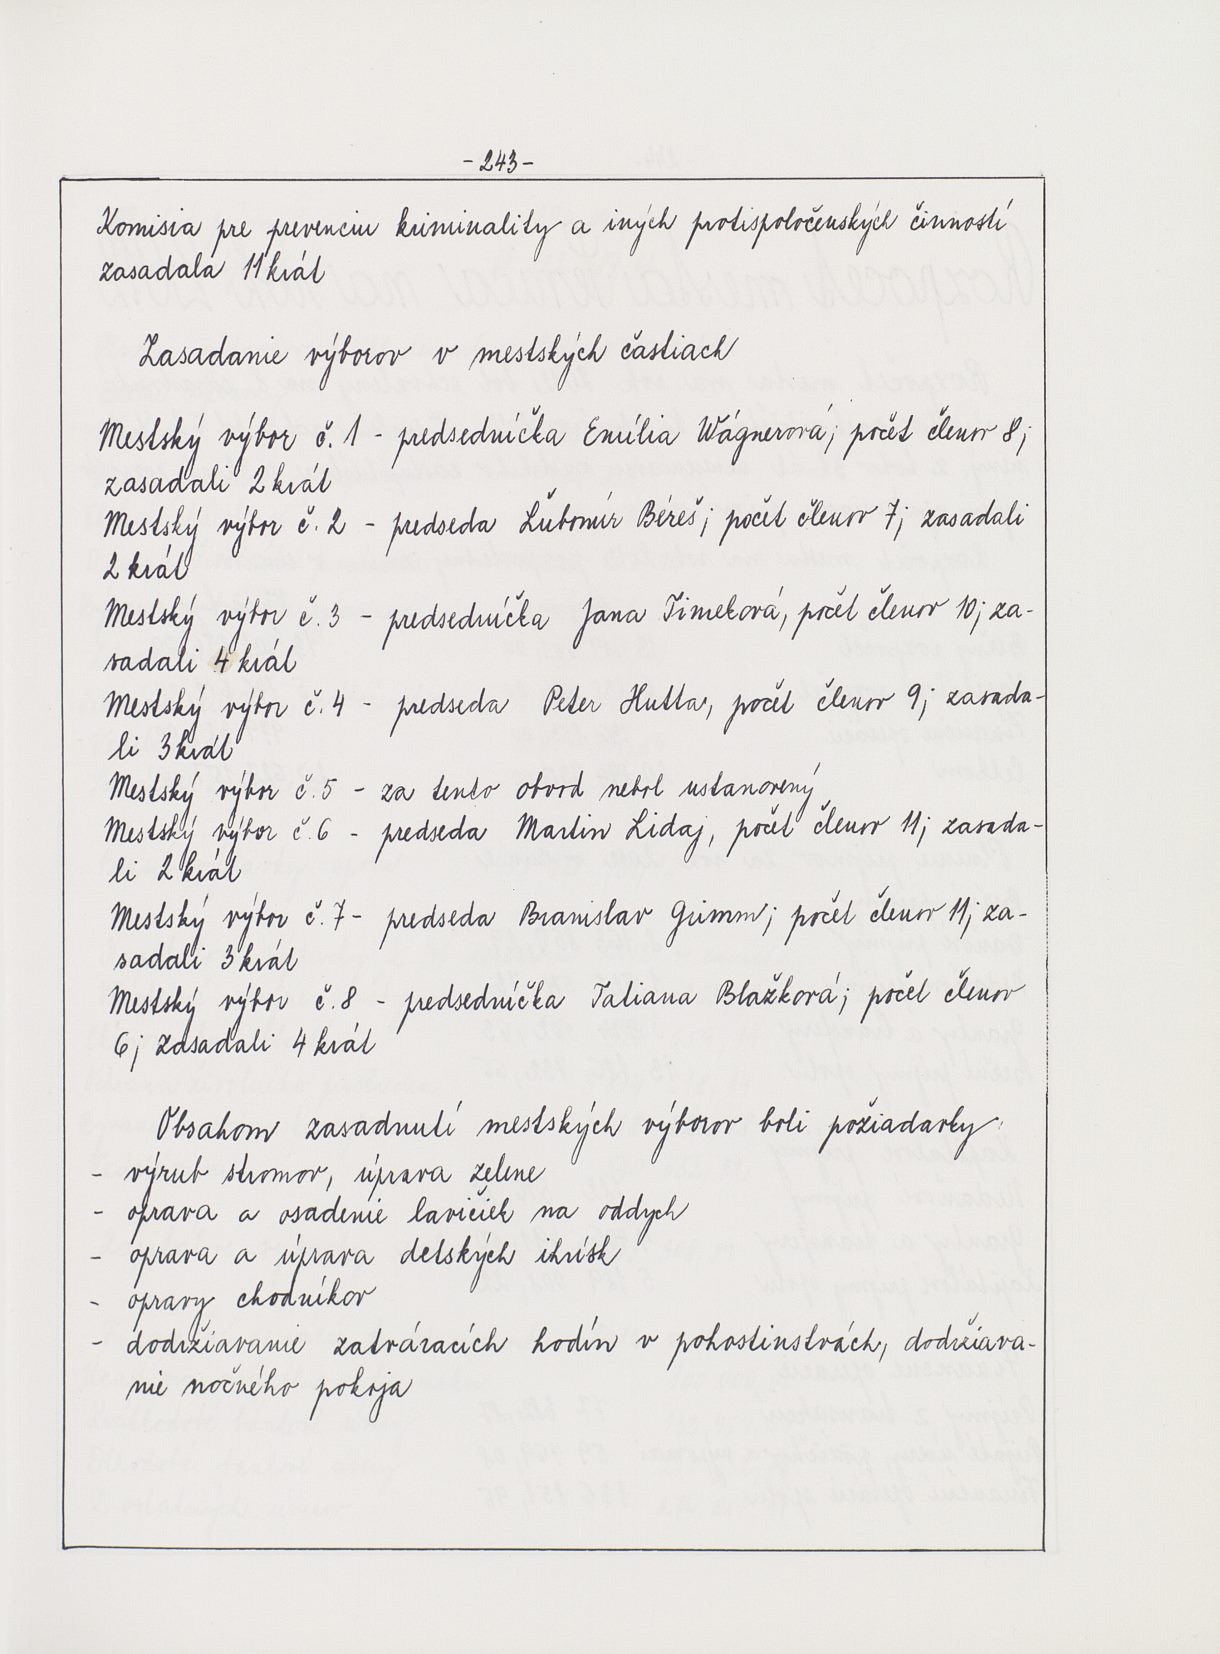 - 243 -
Komisia pre prevenciu kriminality a iných protispoločenských činností
zasadala 11 krát
Zasadanie výborov v mestských častiach
Mestský výbor č. 1 - predsedníčka Emília Wágnerová; počet členov 8;
zasadali 2 krát
Mestský výbor č. 2 - predseda Ľubomír Béreš; počet členov 7; zasadali
2 krát
Mestský výbor č. 3 - predsedníčka Jana Timeková, počet členov 10; za-
sadali 4 krát
Mestský výbor č. 4 - predseda Peter Hutta, počet členov 9; zasada-
li 3 krát
Mestský výbor č. 5 - za tento obvod nebol ustanovený
Mestský výbor č. 6 - predseda Martin Lidaj, počet členov 11; zasada-
li 2 krát
Mestský výbor č. 7 - predseda Branislav Grimm; počet členov 11; za-
sadali 3 krát
Mestský výbor č. 8 - predsedníčka Tatiana Blažková; počet členov
6; zasadali 4 krát
Obsahom zasadnutí mestských výborov boli požiadavky:
- výrub stromov, úprava zelene
- oprava a osadenie lavičiek na oddych
- oprava a úprava detských ihrísk
- opravy chodníkov
- dodržiavanie zatváracích hodín v pohostinstvách, dodržiava-
nie nočného pokoja